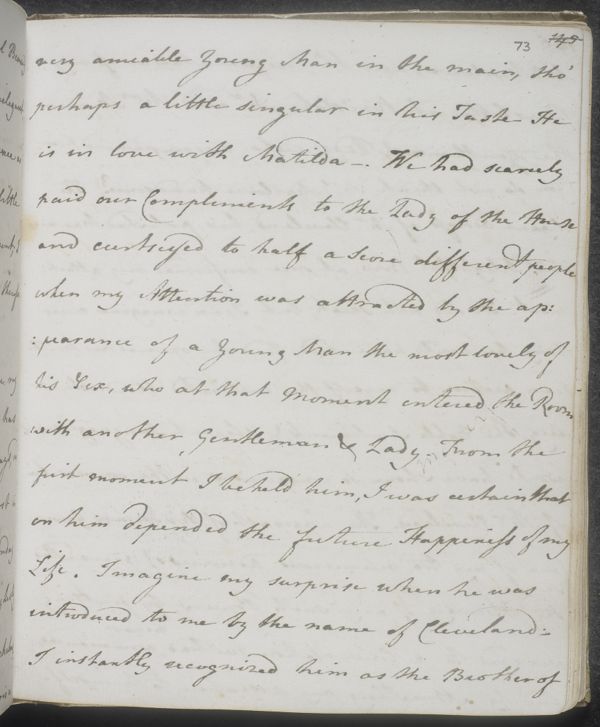 73 145
very amiable Young Man in the main, tho'
perhaps a little singular in his Taste He
is in love with Matilda —. We had scarcely
paid our Compliments to the Lady of the House
and curtseyed to half a score different people
when my Attention was attracted by the ap:
:pearance of a Young Man the most lovely of
his Sex, who at that Moment entered the Room
with another Gentleman & Lady. From the
first moment I beheld him, I was certain that
on him depended the future Happiness of my
Life. Imagine my surprise when he was
introduced to me by the name of Cleveland:
I instantly recognized him as the Brother of